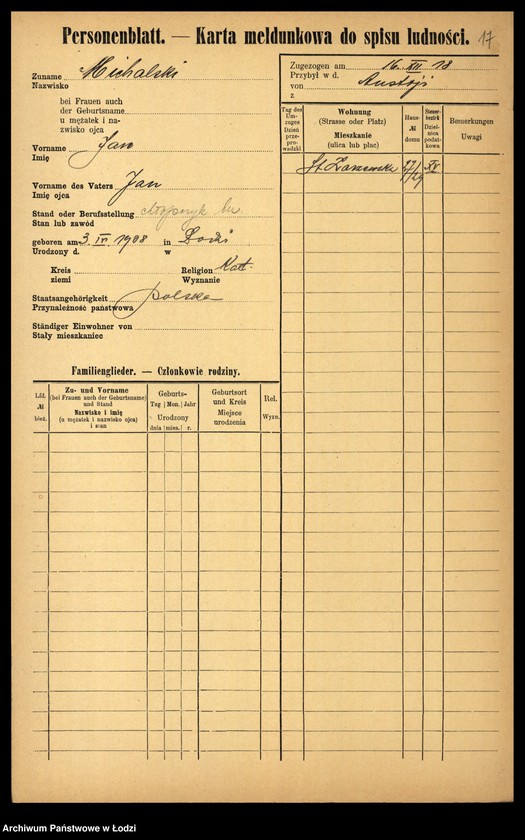 Personenblatt. — Karta meldunkowa do spisu ludności. 17
Zuname Michalski
Nazwisko
bei Frauen auch
der Geburtsname
u mężatek i na-
zwisko ojca
Vorname Jan
Imię
Vorname des Vaters Jan
Imię ojca
Stand oder Berufsstellung
Stan lub zawód
geboren am 3 IV 1908 in Łodzi
Urodzony d. w
Kreis Religion Kat.
ziemi Wyznanie
Staatsangehörigkeit polska
Przynależność państwowa
Ständiger Einwohner von
Stały mieszkaniec
Zugezogen am 16. XII. 18
Przybył w d.
von Austrji
z
Tag des
Um-
zuges
Dzień
prze-
prowadzki
Wohnung
(Strasse oder Platz)
Mieszkanie
(ulica lub plac)
Haus-
№
domu
Steuer-
bezirk
Dziel-
nica
podat-
kowa
Bemerkungen
Uwagi
St. Zarzewska 27/29 XV
Familienglieder. — Członkowie rodziny.
Lfd.
№
bież.
Zu- und Vorname
(bei Frauen auch der Geburtsname)
und Stand
Nazwisko i imię
(u mężatek i nazwisko ojca)
i stan
Geburts-
Tag Mon. Jahr
Urodzony
dnia mies. r.
Geburtsort
und Kreis
Miejsce
urodzenia
Rel.
Wyzn.
Archiwum Państwowe w Łodzi